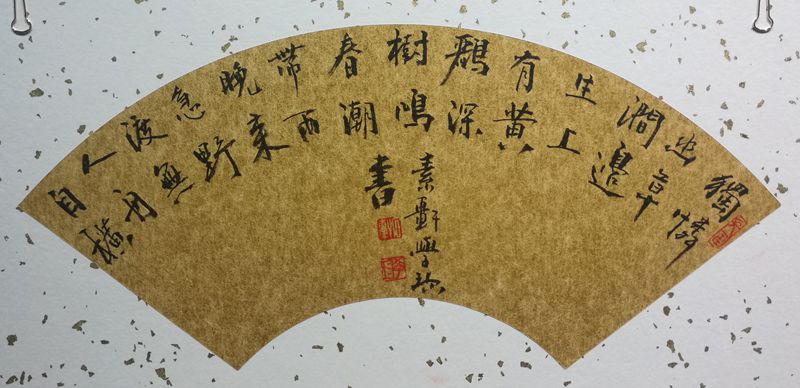 獨憐
幽草
澗邊
生上
有黄
鸝深
樹鳴
春潮
帶雨
晚來
急野
渡無
人舟
自横
素軒學
書